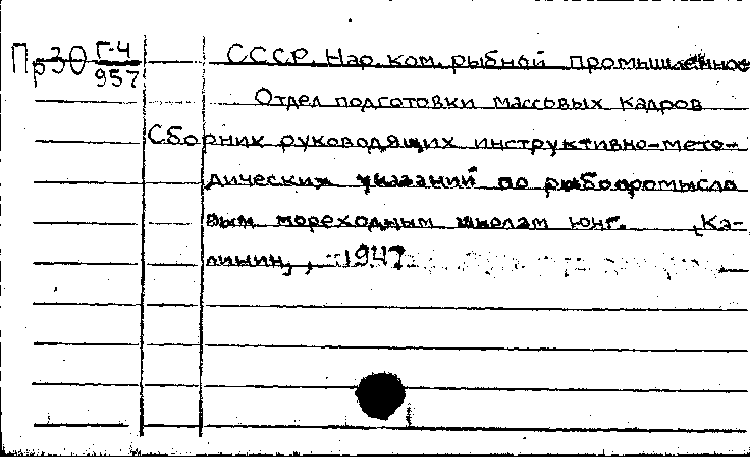 Пр30 Г-4
957
СССР. Нар. ком. рыбной промышленнос
Отдел подготовки массовых кадров
Сборник руководящих инструктивно-мето-
дических указаний по рыбопромысло
вым мореходным школам юнг. [Ка-
линин], 1947.